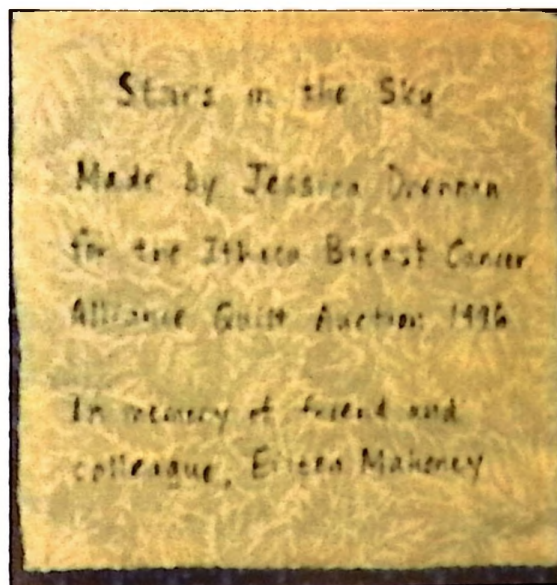 Stars in the Sky
Made by Jessica Drennen
for the Ithaca Breast Cancer
Alliance Quilt Auction 1996
In memory of friend and
colleague, Eileen Mahoney